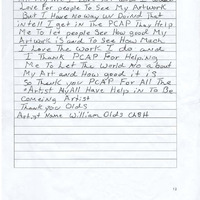 Love For people To See My Artwork
But I Have No way uv Doind That
intell I got in The PCAP They Help
Me To let people See How good My
Artwork is and To See How Much
I Love The Work I do and
I Thank PCAP For Helping
Me To Let The World No a bout
My Art and How good it is
So Thank you PCAP For All The
Artist Ny All Have Help in To Be
Comeing Artist
Thank you Olds
Artist Name William Olds
13